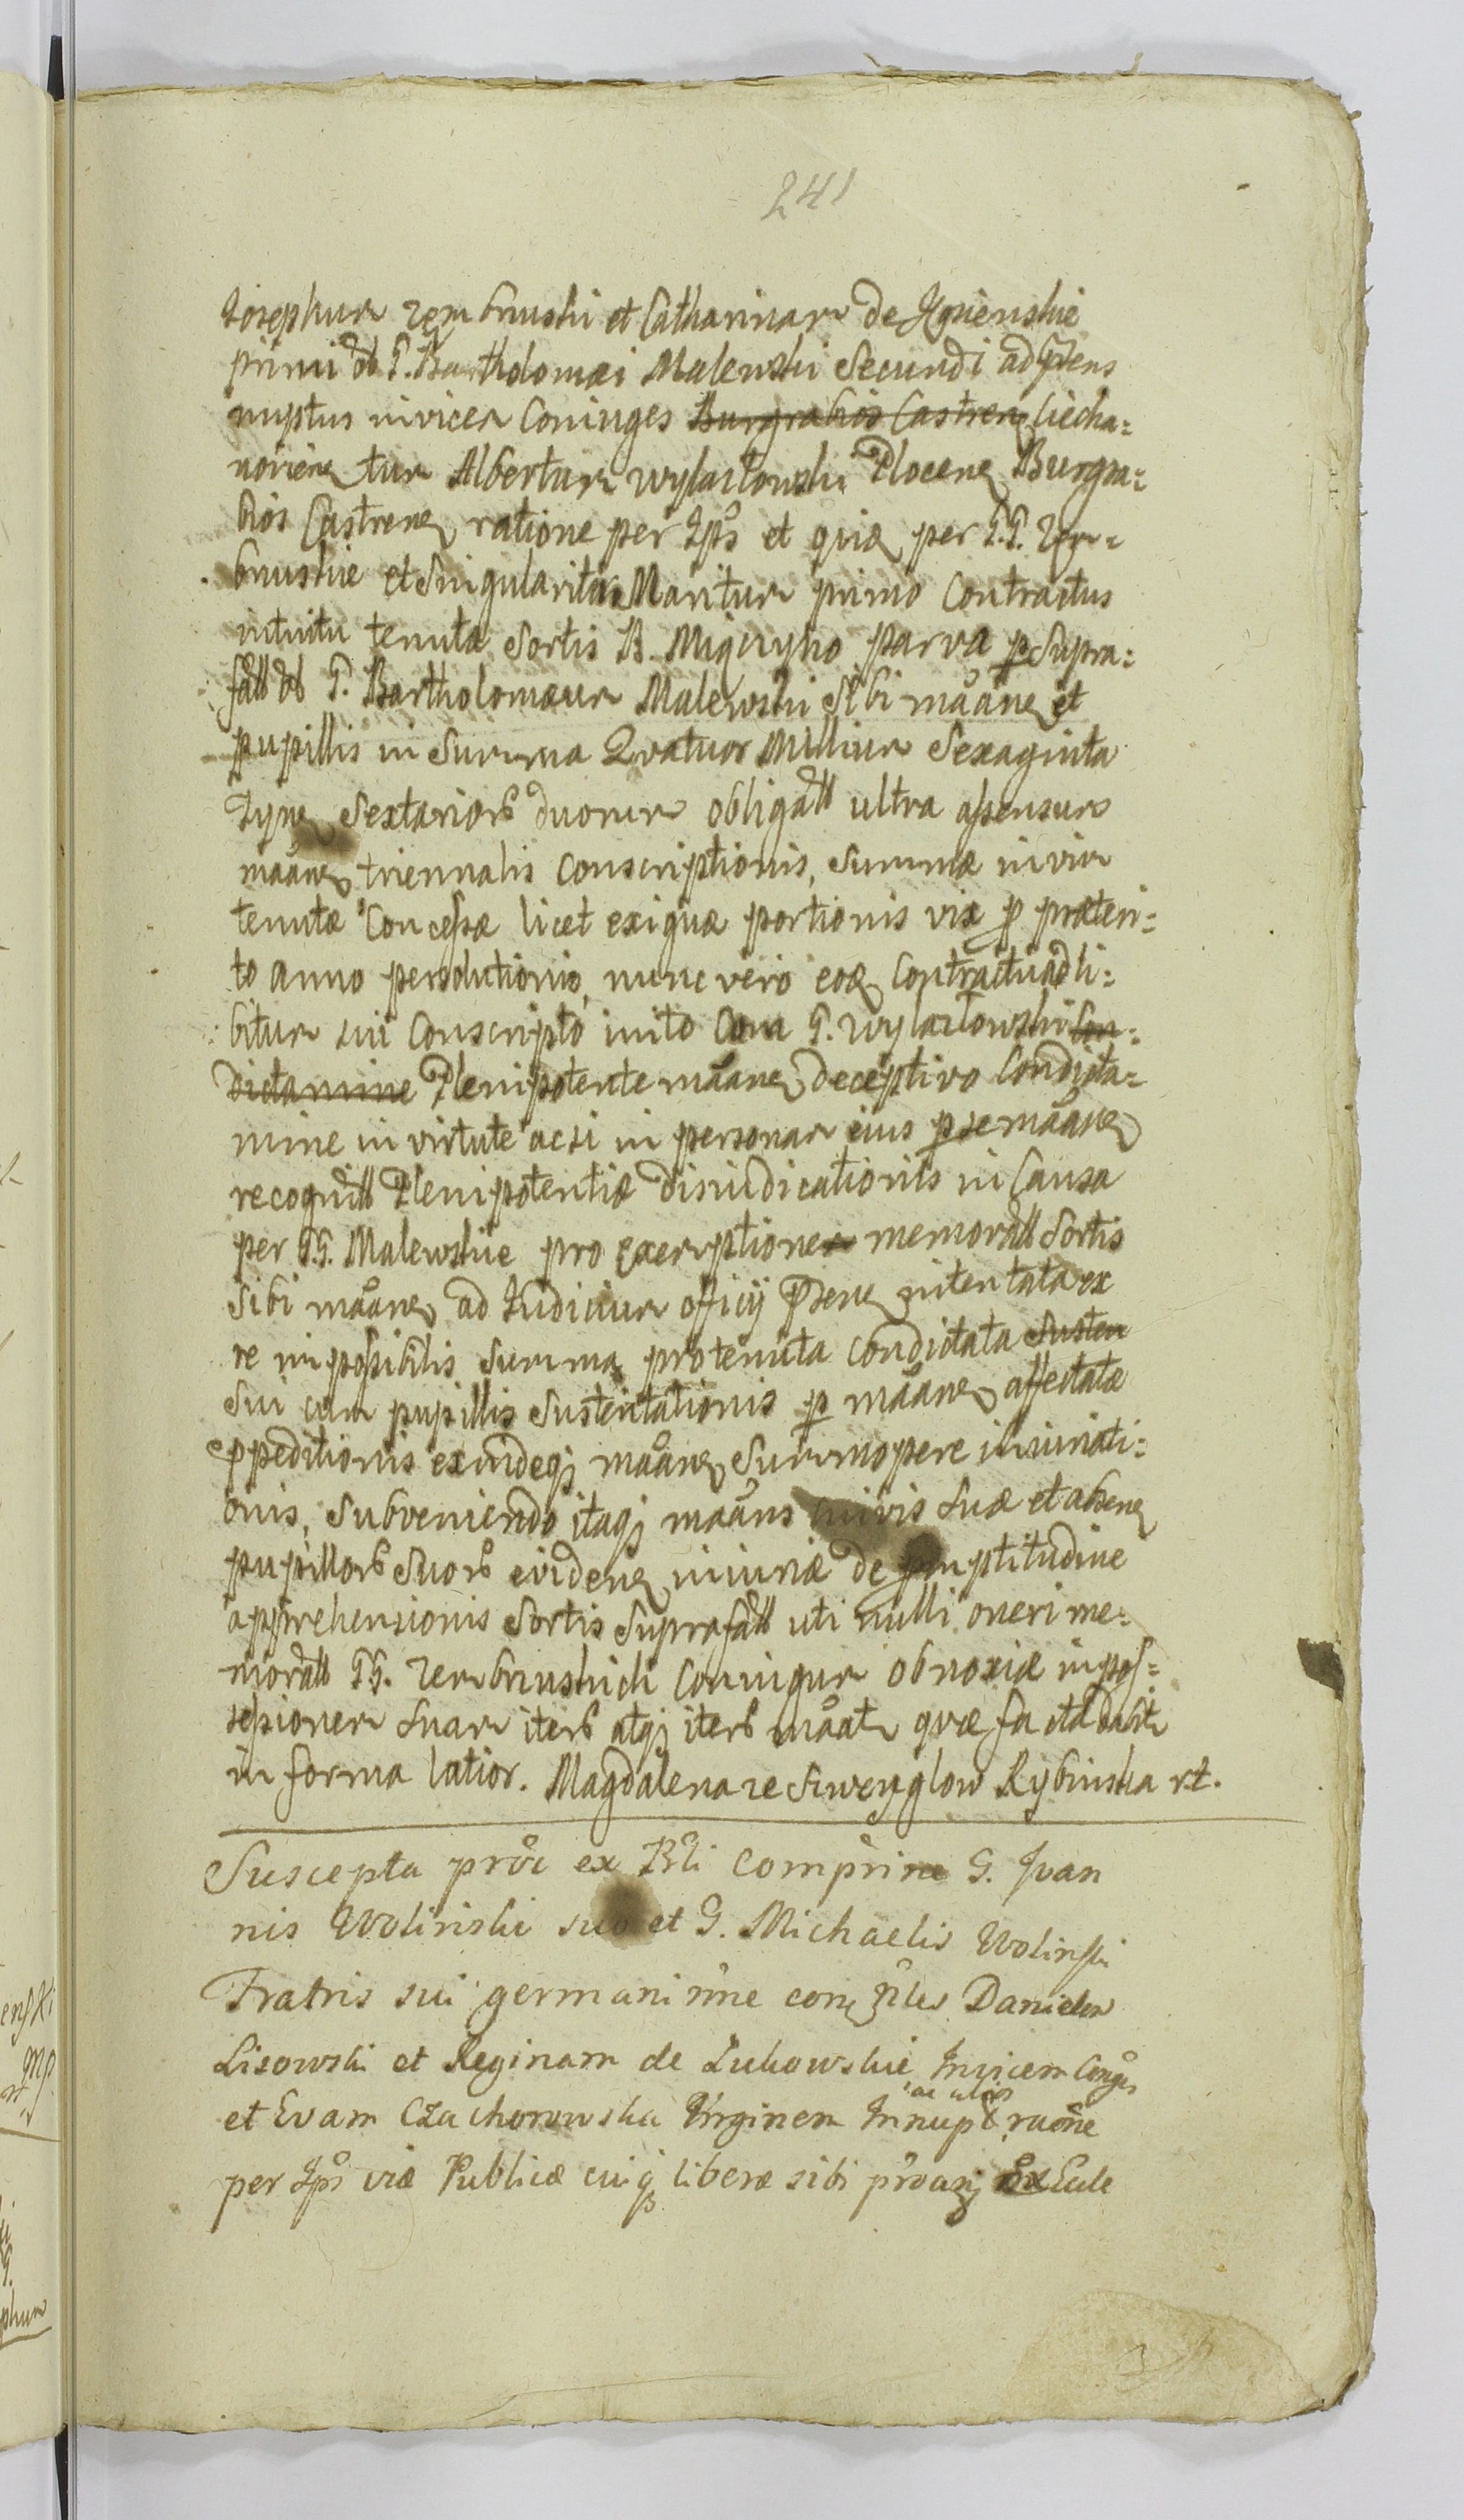 241
Josephum Zembrzuski et Catharinam de Kosienskie
primi ob G. Bartholomæi Malewski Secundi ad præns
nuptus invicem Coniuges Burgrabios Castren Ciecha=
novien tum Albertum Wylazlowski Plocen Burgra=
bios Castren ratione per Ips et quia per G.G. Zem=
bruskie et Singulariter Maritum primo Contractus
intuitu tenutæ Sortis B. Migucyno parva p supra=
fatt ob G. Bartholomæum Malewski Sibi maane et
pupillis in Summa Quatuor Millium Sexaginta
Tynf Sextariorb duorum obligatt ultra assensum
maane triennalis Conscriptionis, Summæ in vim
tenutæ Concessæ licet exiguæ portionis vix p præteri=
to anno persolutionis, nunc vero eoq Contractu ad li=
bitum sui Conscripto inito Cum G. Wylazlowski Con=
dictamine Plenipotente maane deceptivo Condicta=
mine in virtute acsi in personam eius p se maane
recognitt Plenipotentiæ disiudicationis in Causa
per G.G. Malewskie pro exemptione memoratt Sortis
Sibi maane ad Judicium officij præsen intentata ex
re impossibilis Summa pro tenuta Condictata Susten
Sui cum pupillis Sustentationis p maane affectatæ
expeditionis exindeq maane Summopere iniuriati=
onis, Subveniendo itaq maans iuris Suæ et absen
pupillorb Suorb eviden iniuriæ de promptitudine
apprehensionis Sortis Suprafatt uti nulli oneri me=
moratt GG. Zembruskich Coniugum obnoxiæ in pos=
sessionem Suam iterb atq iterb maat quæ facta dabit
in forma latior. Magdalena ze Szwenglow Rybinska rt.
Suscepta proc ex Rli Comprim G. Joan
nis Wolinski suo et G. Michaelis Wolinski
Fratris sui germani nne con nles Danielem
Lisowski et Reginam de Zukowskie Invicem Conges
ac alios
et Evam Czachorowska Virginem Innupt raone
per Ips viæ Publicæ cuiq liberæ sibi proan ex Eccle